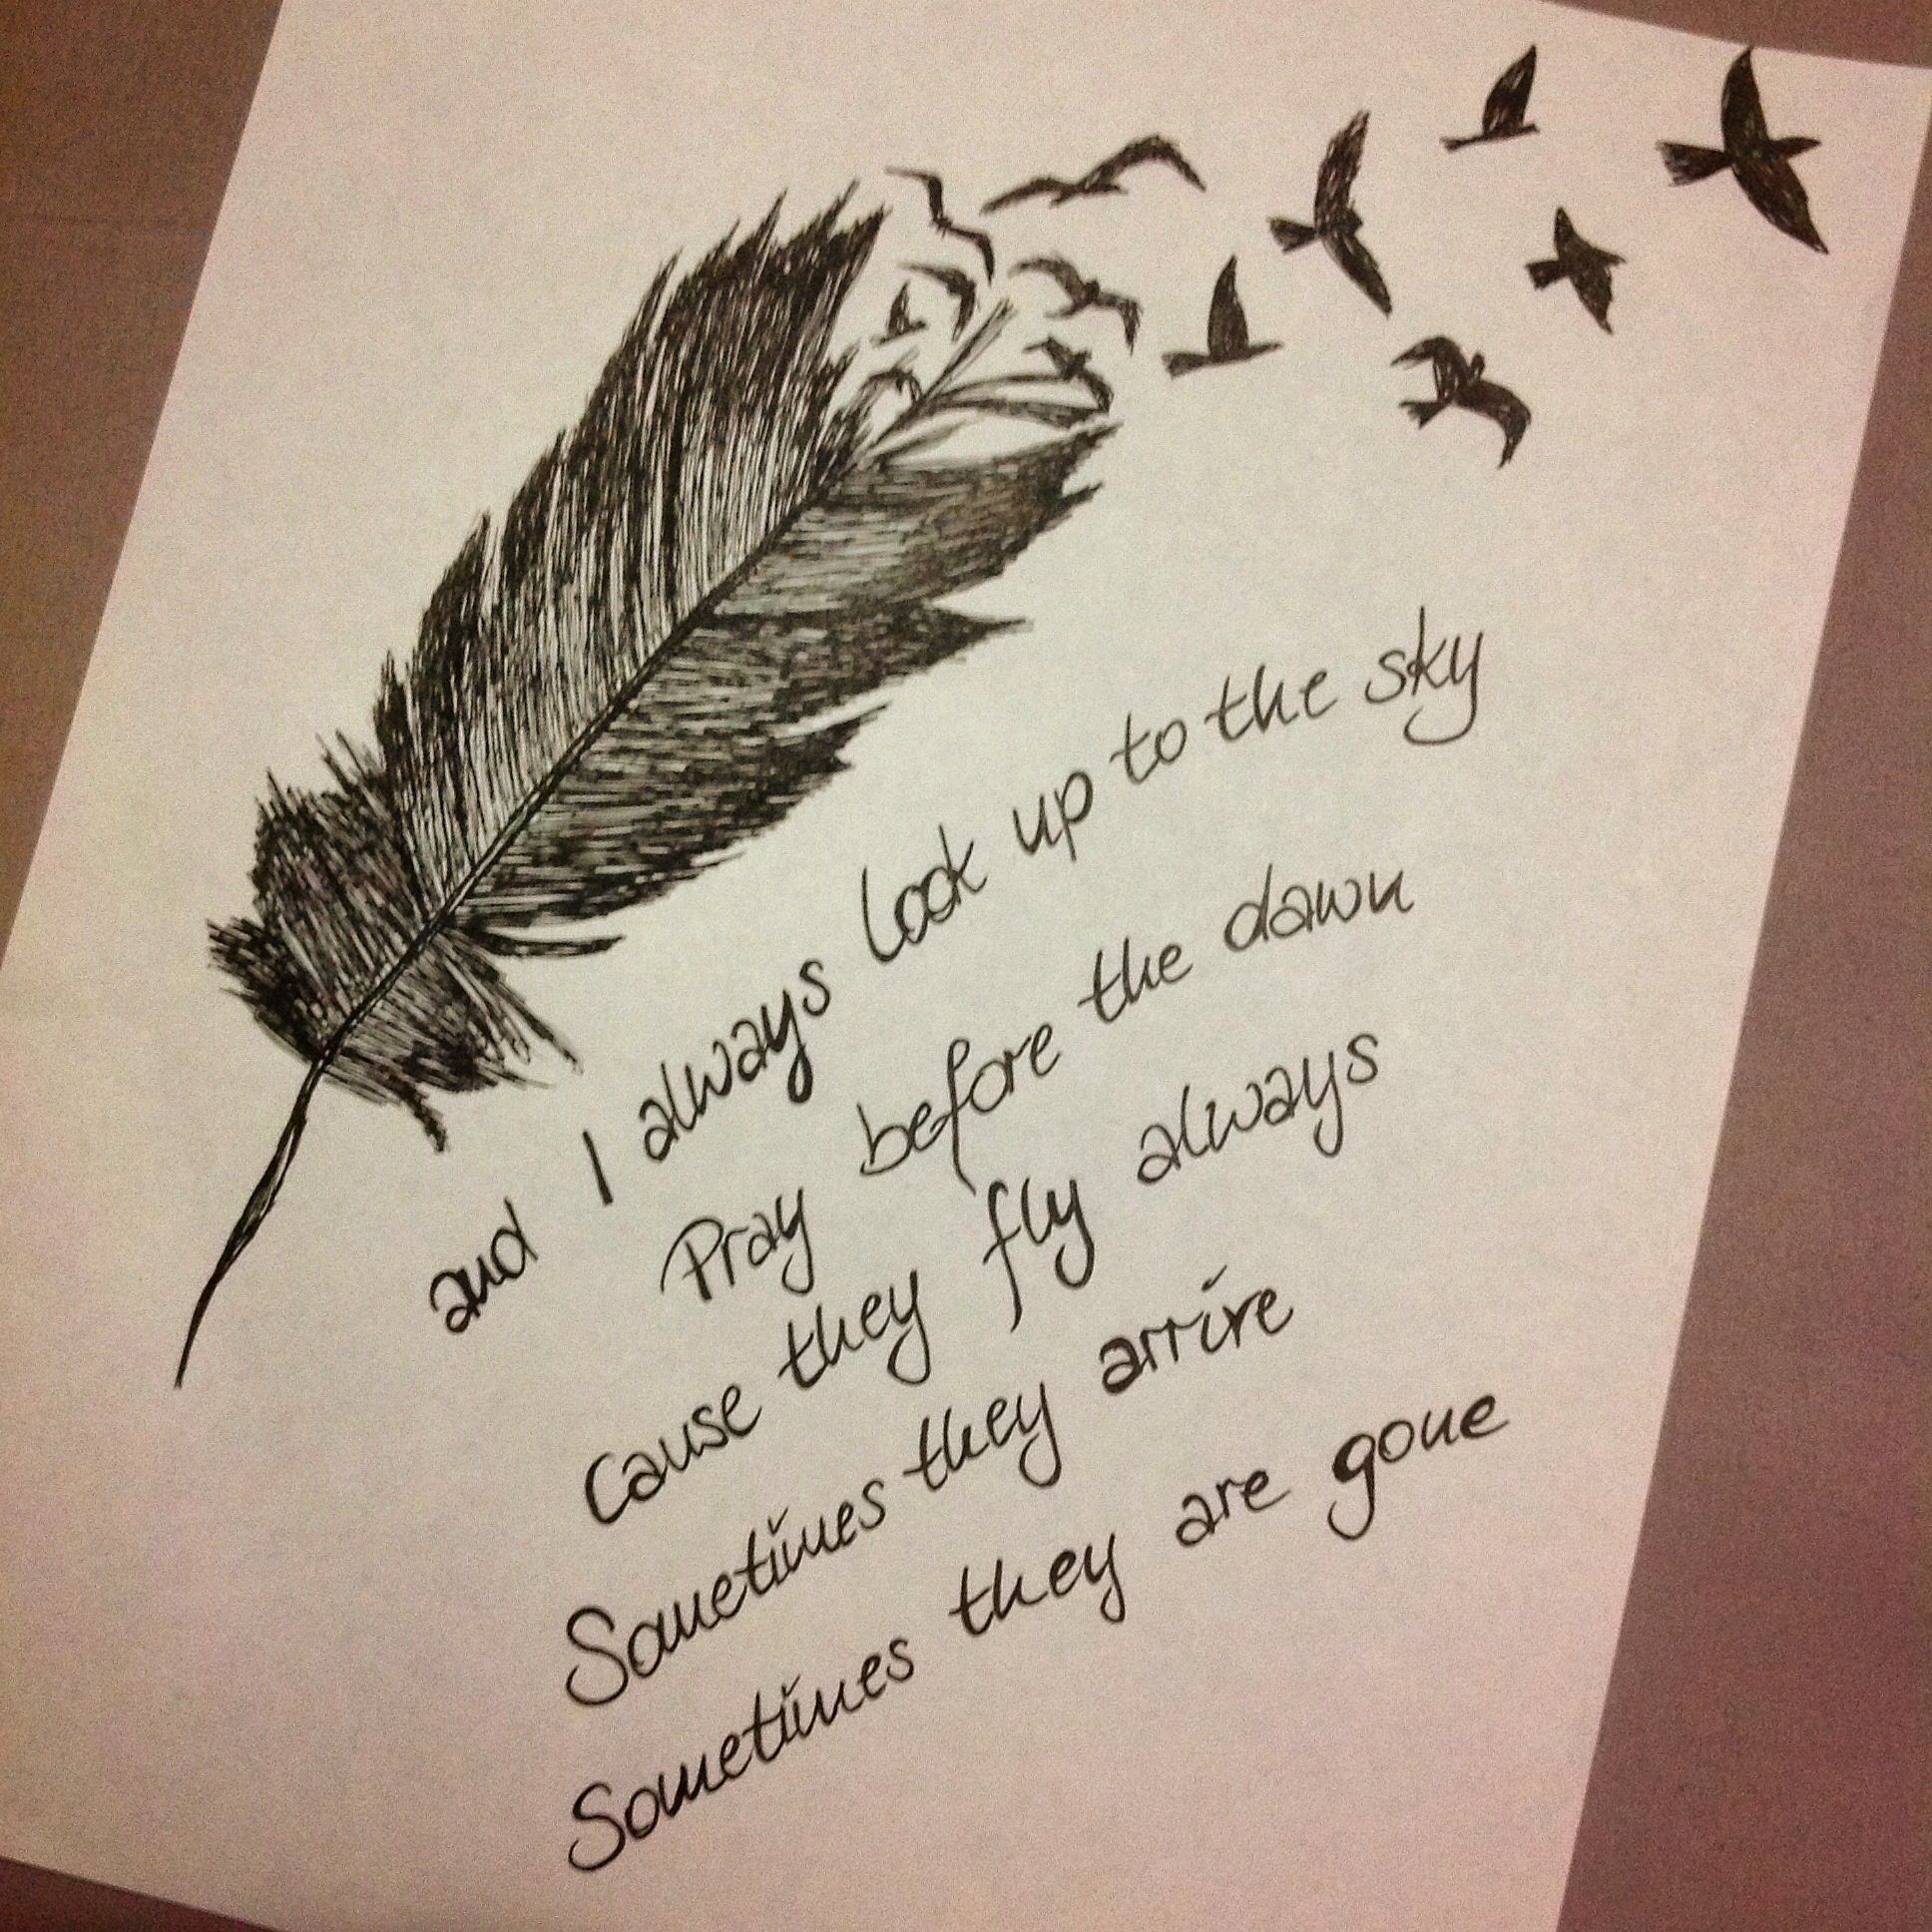 and I always look up to the sky
Pray before the dawn
cause they fly always
Sometimes they arrive
Sometimes they are gone